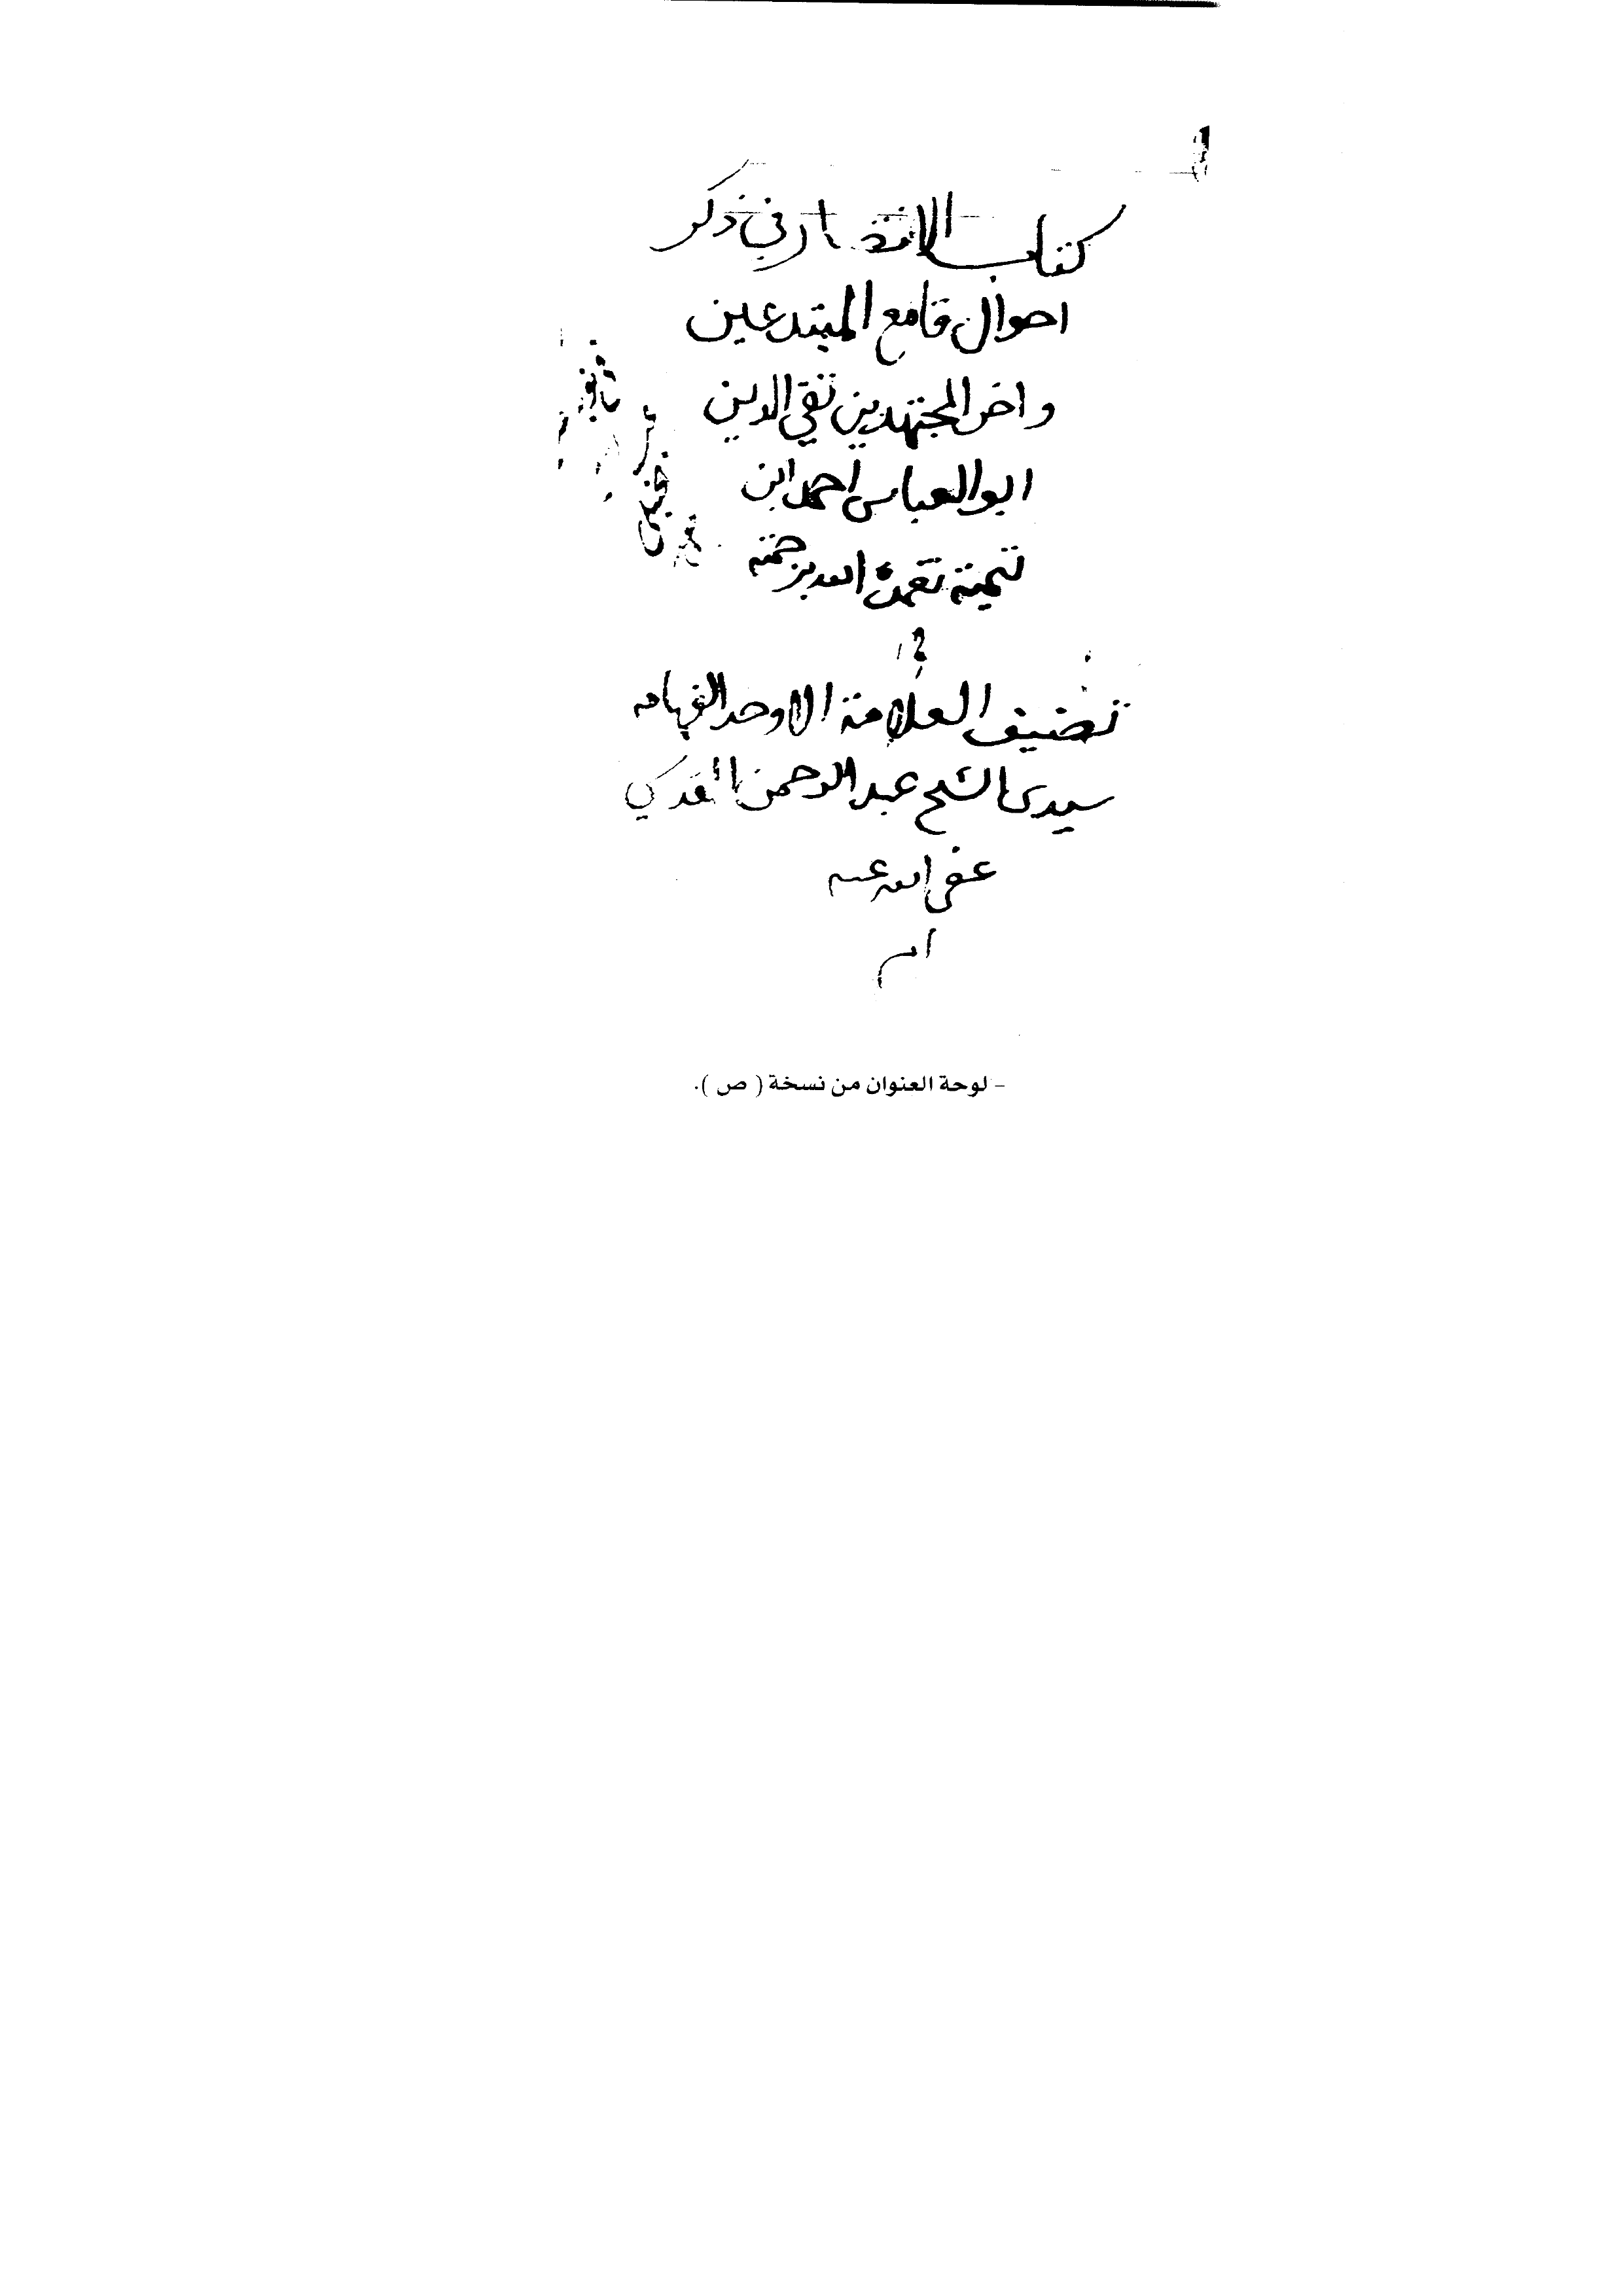 كتاب الانتصار في ذكر
احوال قامع المبتدعين
واخر المجتهدين تقي الدين
ابو العباس احمد ابن
تيمية تغمده الله برحمته
تصنيف العلامة الاوحد الفهامه
سيدى الشيخ عبد الرحمن المقدسي
عفى الله عنه
ام
– لوحة العنوان من نسخة ( ص ).